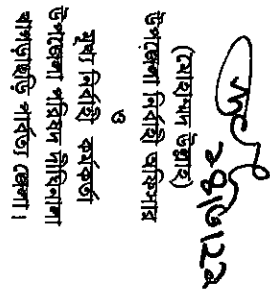 (মোহাম্মদ উল্লাহ)
উপজেলা নির্বাহী অফিসার
ও
মূখ্য নির্বাহী কর্মকর্তা
উপজেলা পরিষদ দীঘিনালা
খাগড়াছড়ি পার্বত্য জেলা।